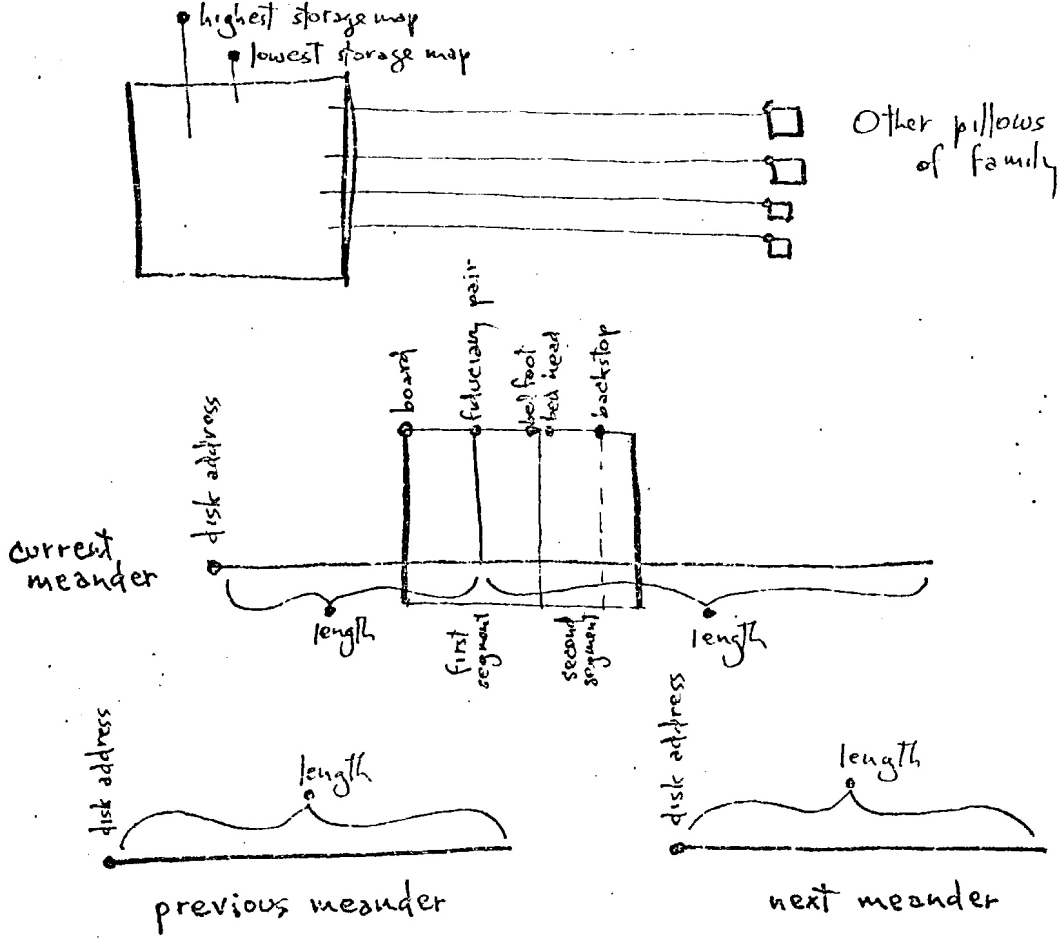 highest storage map
lowest storage map
Other pillows
of family
board
fiduciary pair
bed foot
bed head
backstop
disk address
current
meander
length
first
segment
second
segment
length
disk address
length
previous meander
disk address
length
next meander